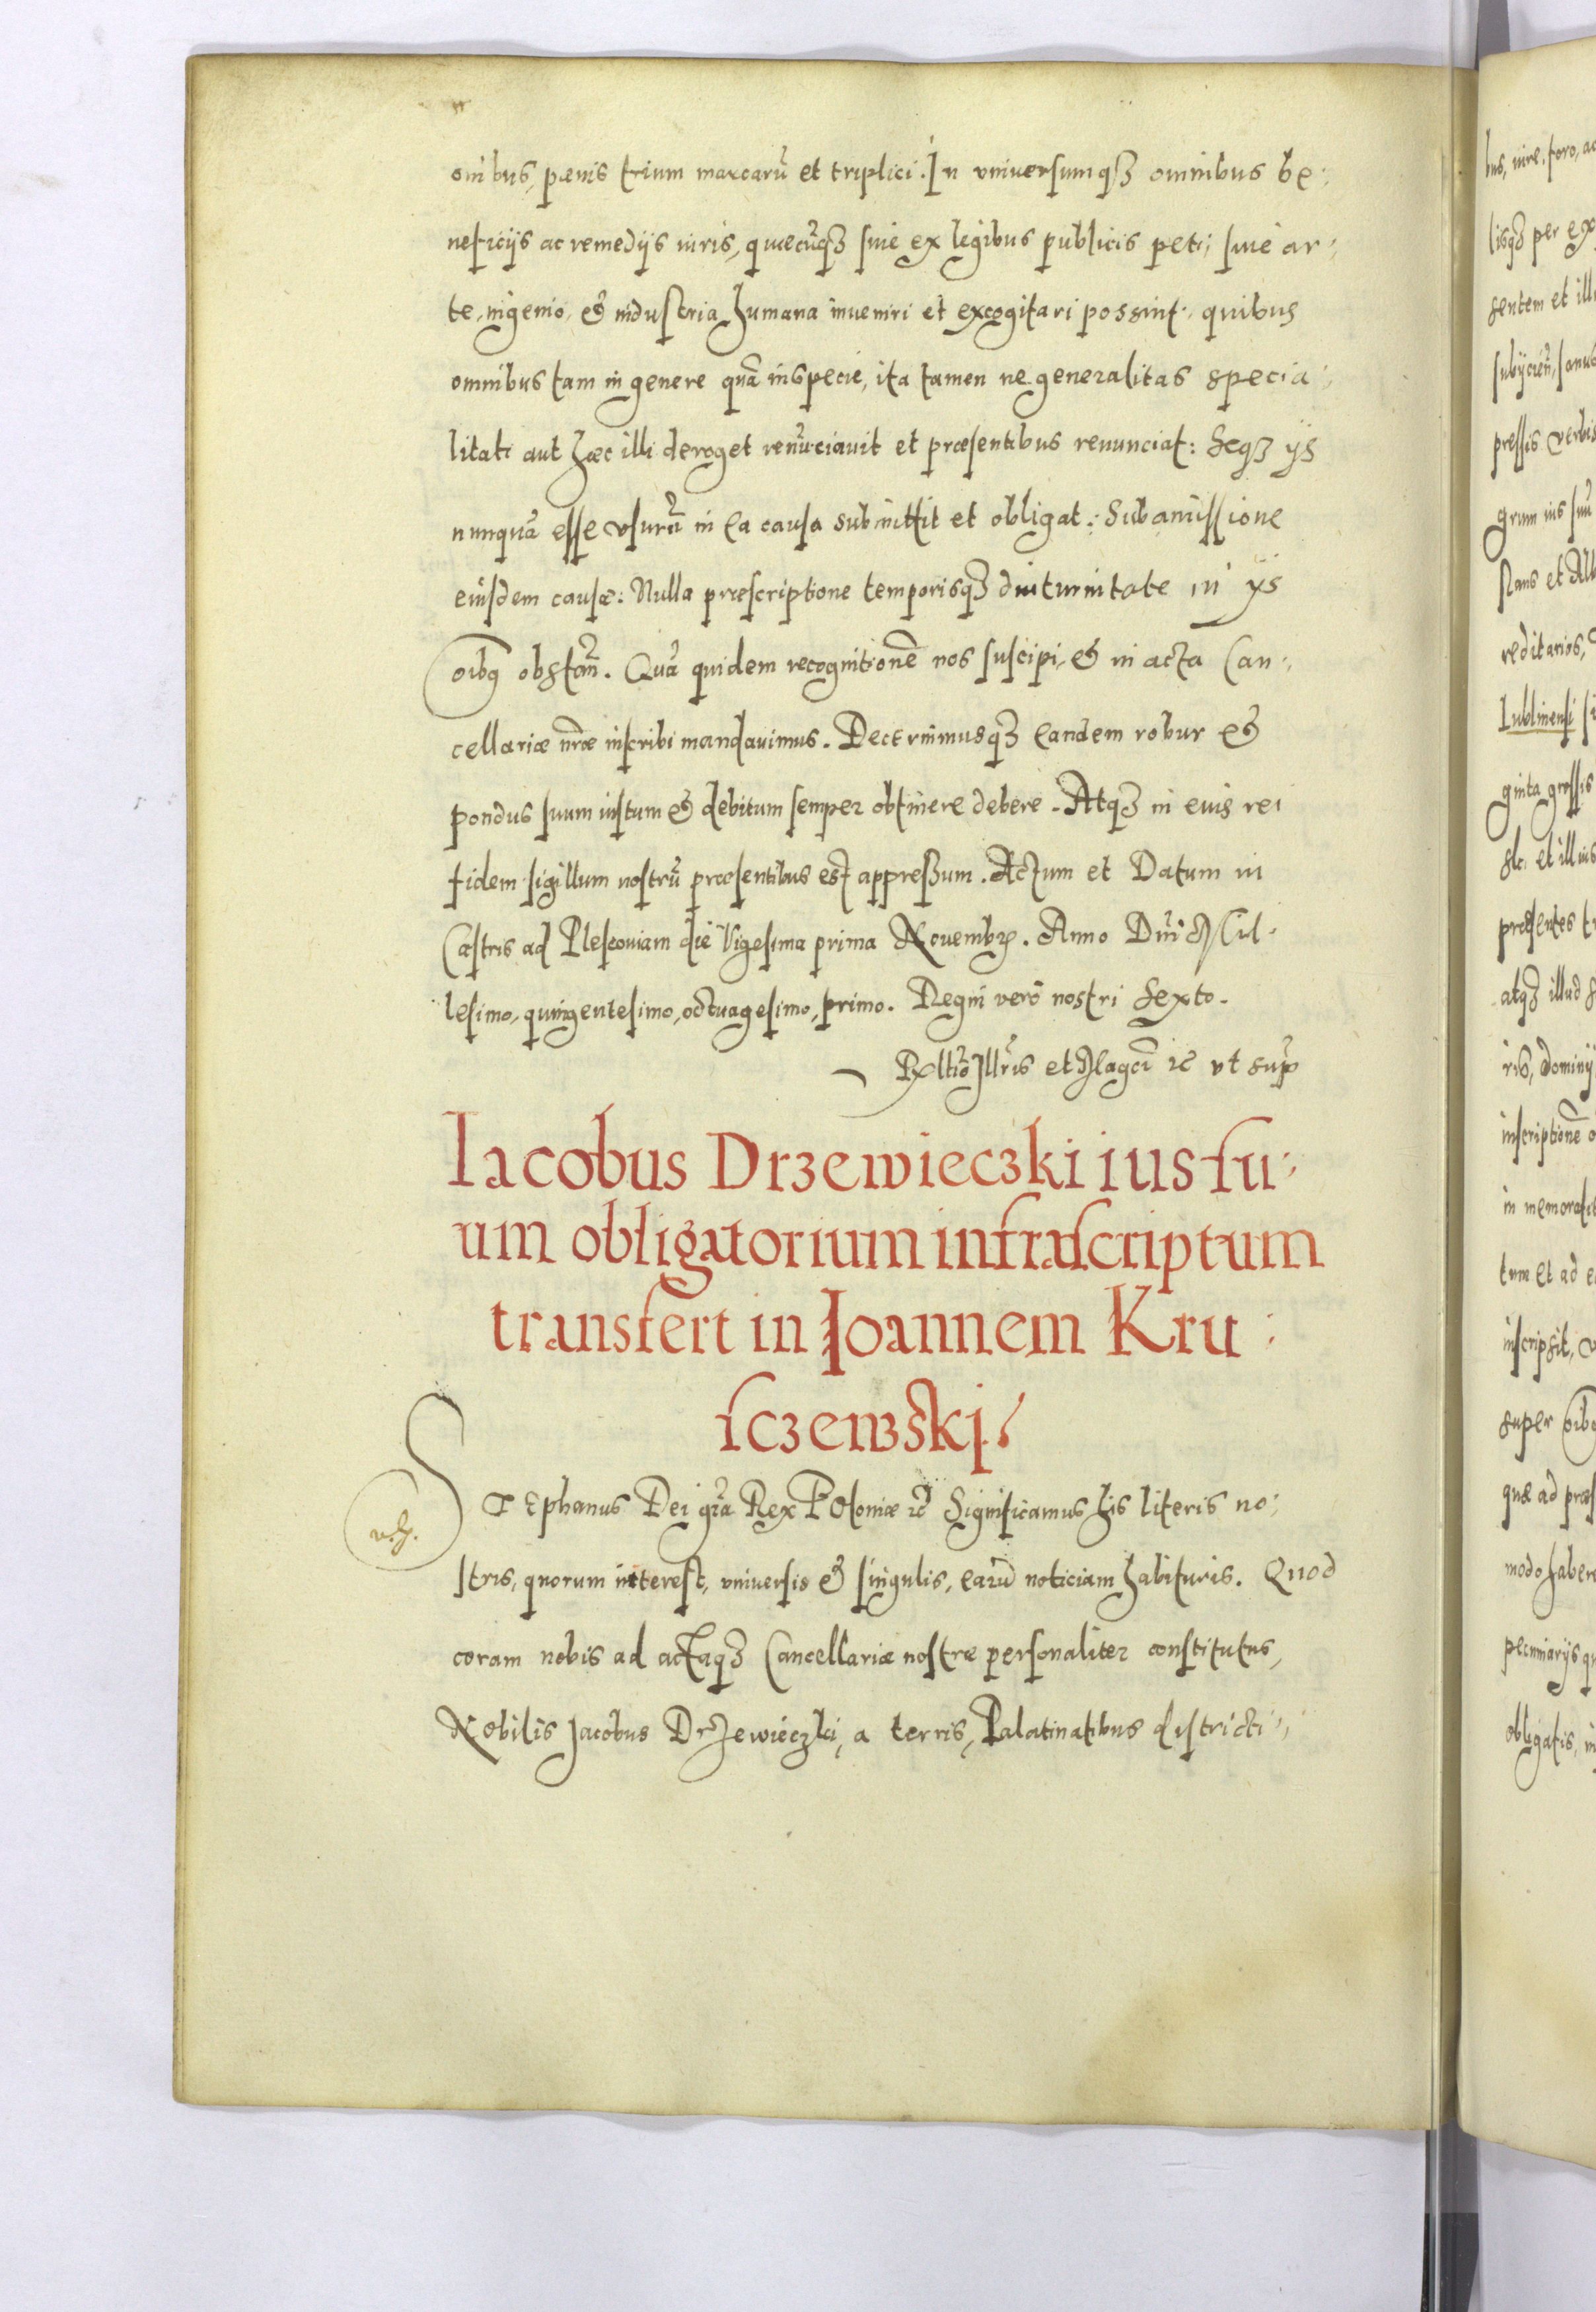 onibus, pænis trium marcarũ et triplici. In vniuersumqꝫ omnibus be:
neficijs ac remedijs iuris, quæcũqꝫ siue ex legibus publicis peti, siue ar:
te, ingenio, & industria humana inueniri et excogitari possint, quibus
omnibus tam in genere quã in specie, ita tamen ne generalitas specia:
litati aut hæc illi deroget renũciauit et præsentibus renunciat: Seqꝫ ijs
nunquã esse vsurũ in ea causa submittit et obligat: Sub amissione
eiusdem causæ: Nulla præscriptione temporisqꝫ diuturnitate in ijs
oibꝫ obstañ. Quã quidem recognitionẽ nos suscipi, & in acta Can:
cellariæ nræ inscribi mandauimus. Decernimusqꝫ eandem robur &
pondus suum iustum & debitum semper obtinere debere. Atqꝫ in euis rei
fidem sigillum nostrũ præsentibus est appressum. Actum et Datum in
Castris ad Plescouiam die Vigesima prima Nouembr̃. Anno Dñi Mil:
lesimo, quingentesimo, octuagesimo, primo. Regni verò nostri Sexto.
Rl̃tio Ill̃ris et Magci ꝛc vt sup̃
Iacobus Drzewieczki ius su:
um obligatorium infrascriptum
transfert in Ioannem Kru:
sczewski.
v. h.
STEphanus Dei gr̃a Rex Poloniæ ꝛc̃ Significamus his literis no:
stris, quorum interest, vniuersis & singulis, earũ noticiam habituris. Quod
coram nobis ad actaqꝫ Cancellariæ nostræ personaliter constitutus,
Nobilis Jacobus Drzewieczki, a terris, Palatinatibus districti:
bus, iure, foro, ac
lisqꝫ per ex
sentem et ill
pressis verbis
grum ius suũ
reditarios,
Lublinensi
ginta grossis
præsentes
atqꝫ illud
ris, dominij
inscriptionẽ
in memorat
tum et ad
inscripsit,
super oib
quæ ad præs
modo habere
pecuniarijs
obligatis, in